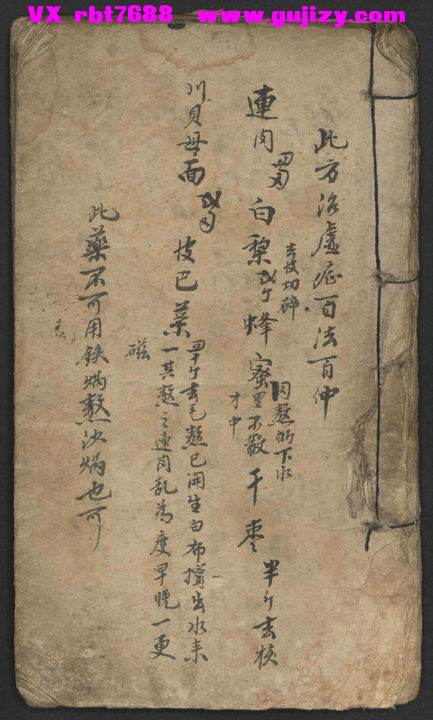 VX rbt7688 www.gujizy.com
此方治虛症百法百中
連肉 白梨 去皮切碎 蜂蜜 同熬的下水 里不散 才中 干棗 半斤去核
川貝母面 皮巴菜 四十个去毛熬巴開生白布擠出水来
一其熬之連肉乱為度早晚一更
磁
此藥不可用鉄焗熬沙焗也可